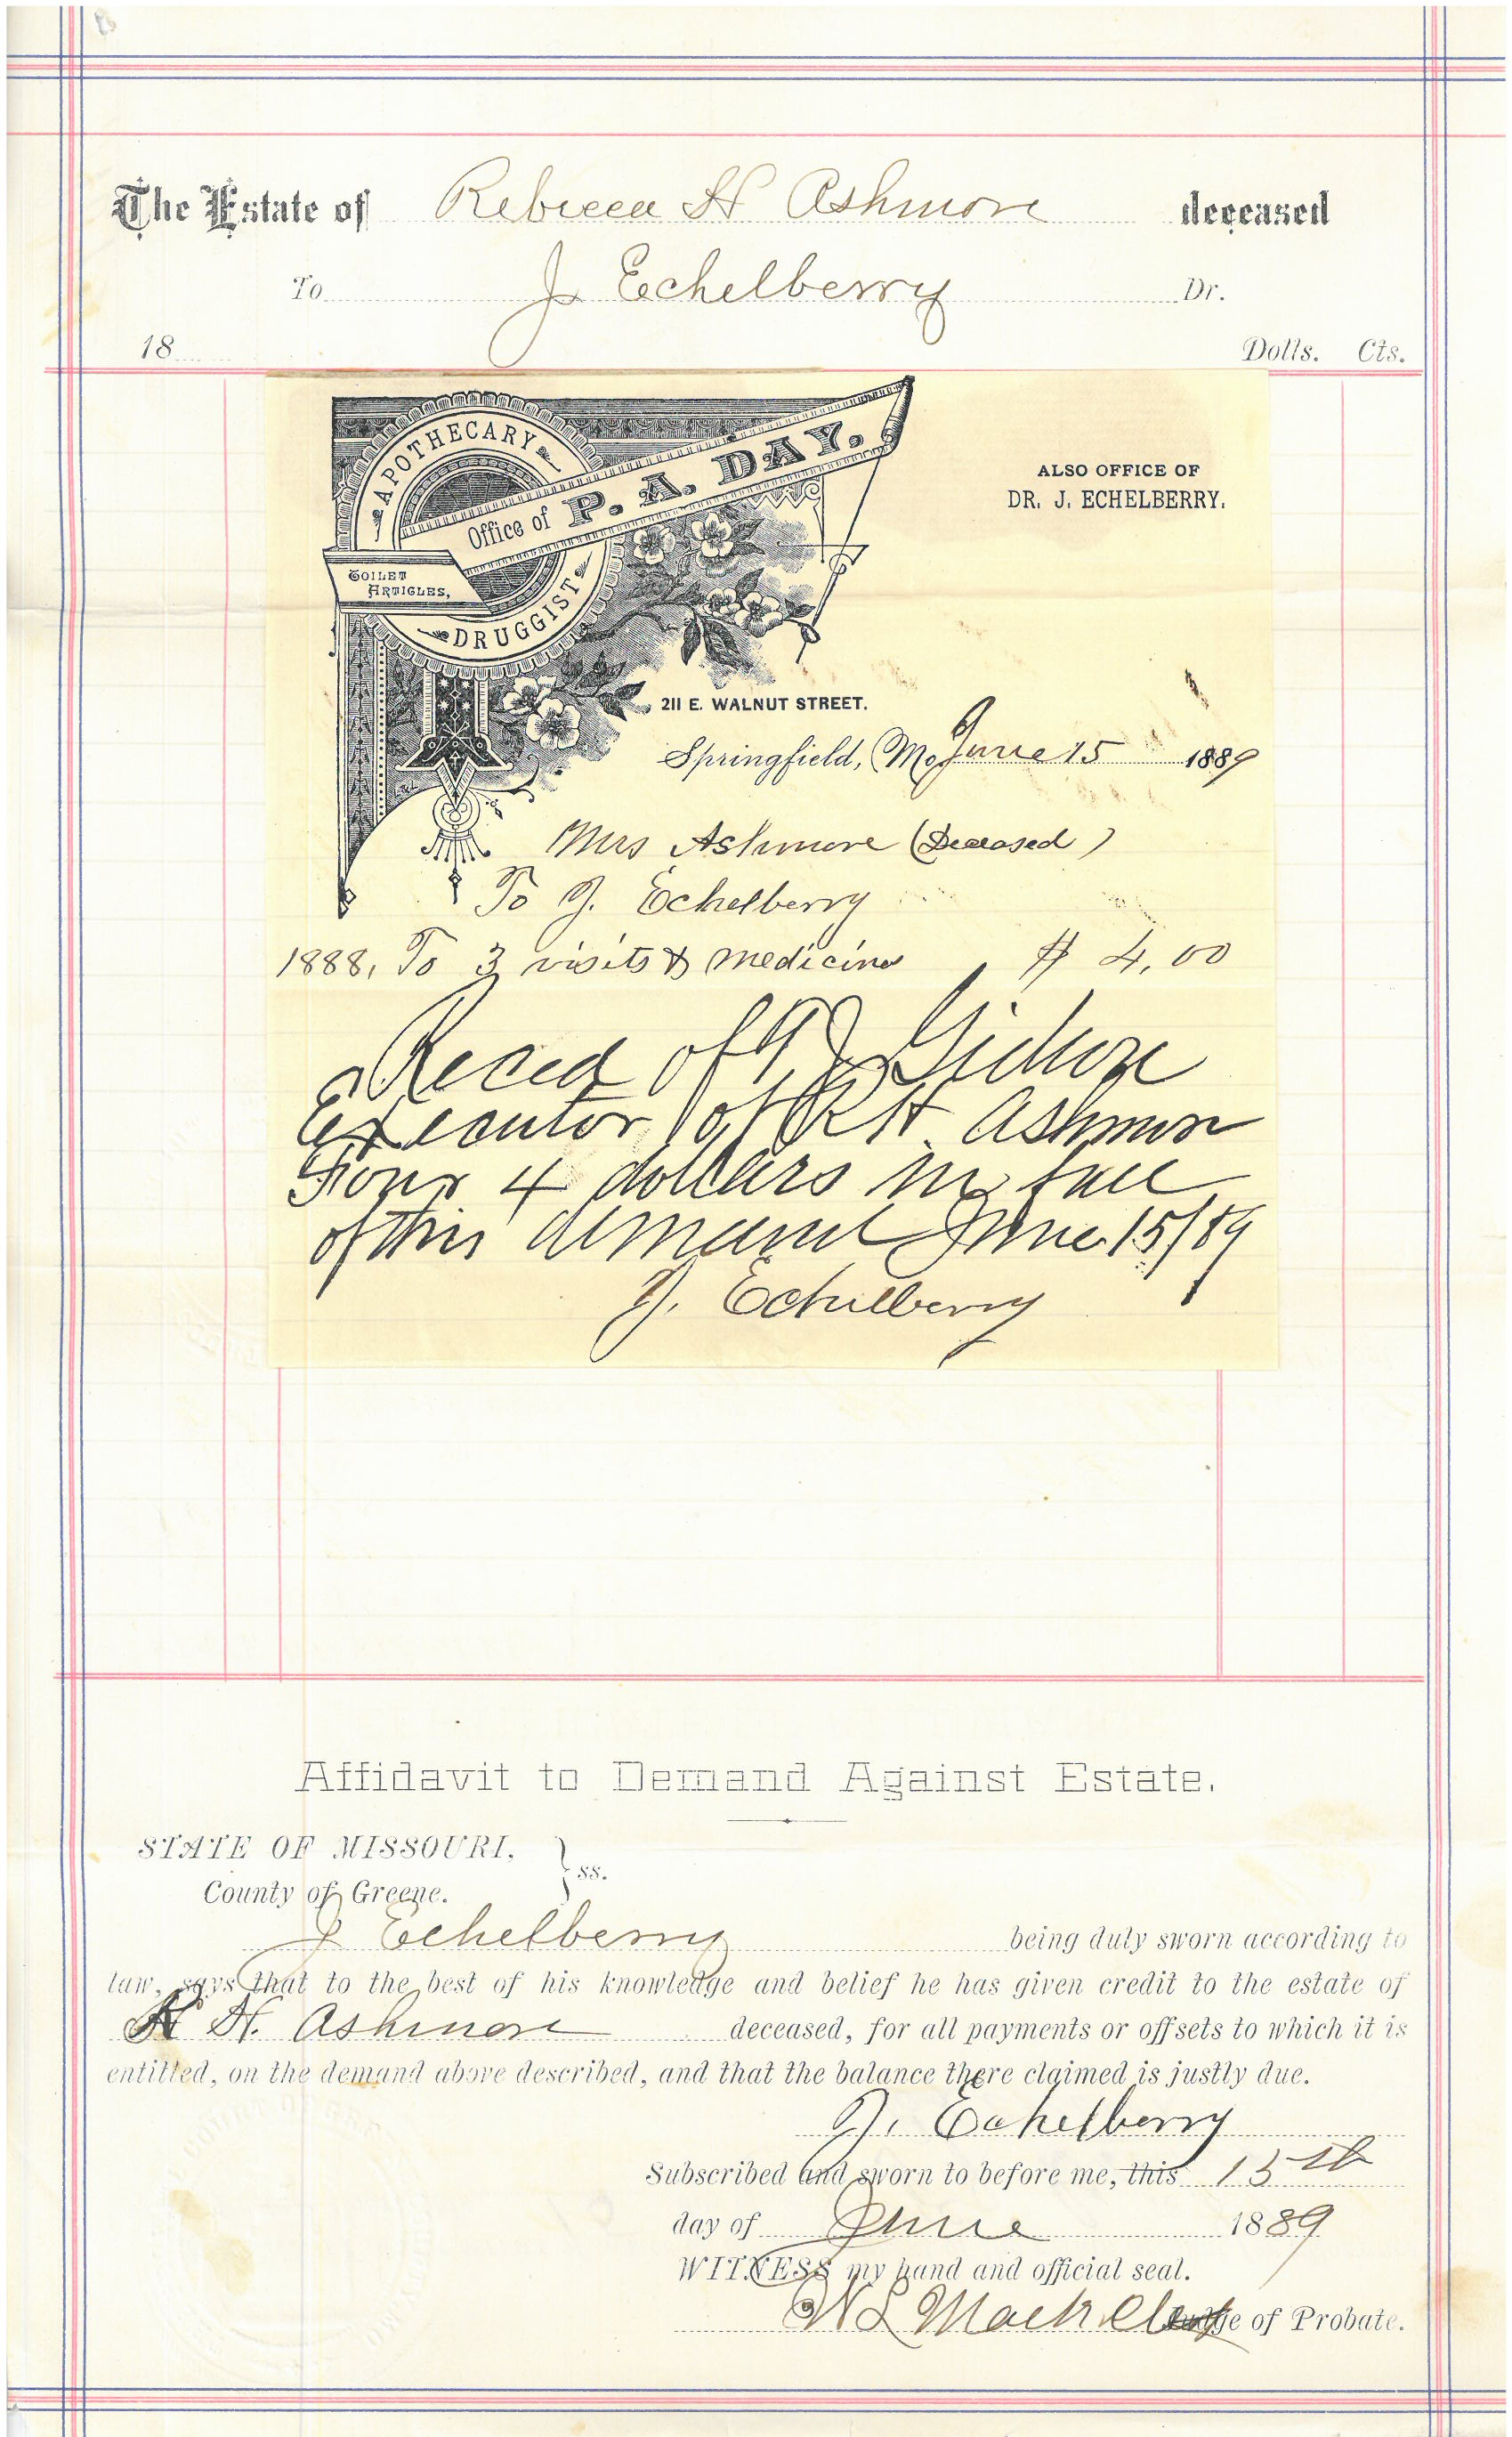 The Estate of Rebecca H Ashmore deceased
To J Echelberry Dr.
18 Dolls. Cts.
APOTHECARY
Office of P. A. DAY.
TOILET
ARTICLES,
DRUGGIST
ALSO OFFICE OF
DR. J. ECHELBERRY.
211 E. WALNUT STREET.
Springfield, Mo June 15 1889
Mrs Ashmore (Deceased)
To J. Echelberry
1888, To 3 visits & medicine $ 4,00
Reced of T J Gideon
Executor of R H Ashmore
Four 4 dollars in full
of this demand June 15/89
J. Echelberry
Affidavit to Demand Against Estate.
STATE OF MISSOURI, } ss.
County of Greene.
J Echelberry being duly sworn according to
law, says that to the best of his knowledge and belief he has given credit to the estate of
R H. Ashmore deceased, for all payments or offsets to which it is
entitled, on the demand above described, and that the balance there claimed is justly due.
J. Echelberry
Subscribed and sworn to before me, this 15th
day of June 1889
WITNESS my hand and official seal.
W L Mack Clerk Judge of Probate.